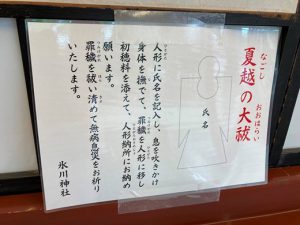 夏越の大祓
なごし
おおはらい
氏名
人形に氏名を記入し、息を吹きかけ
身体を撫でて、罪穢を人形に移し
初穂料を添えて、人形納所にお納め
願います。
罪穢を祓い清めて無病息災をお祈り
いたします。
氷川神社